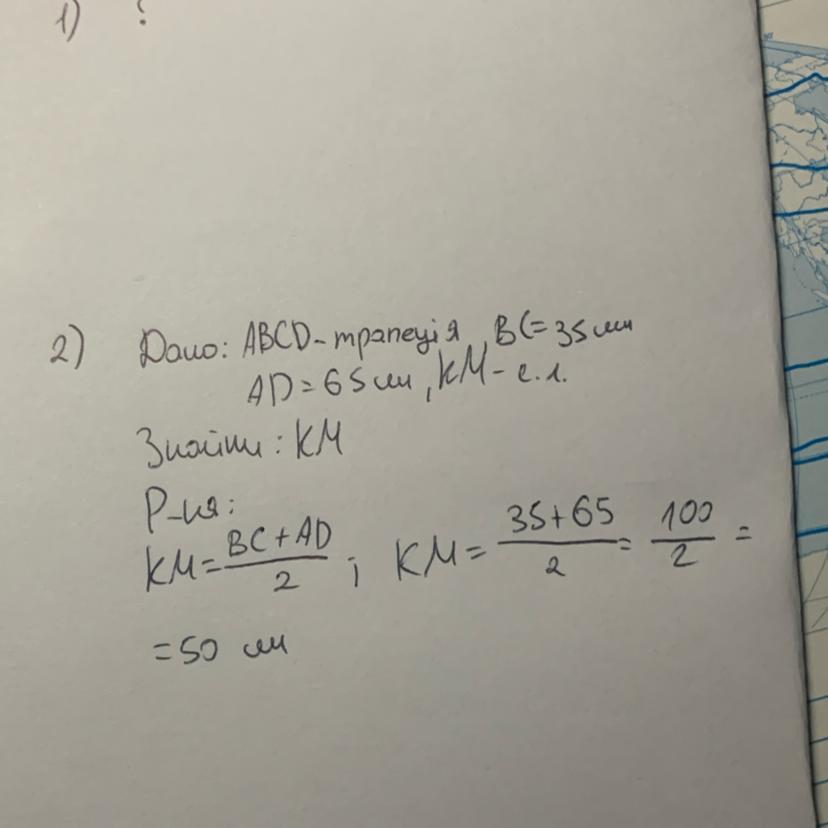 1) ?
2) Дано: ABCD - трапеція, BC = 35 см
AD = 65 см, KM - с.л.
Знайти: KM
Р-ня:
KM = BC + AD / 2 ; KM = 35 + 65 / 2 = 100 / 2 =
= 50 см